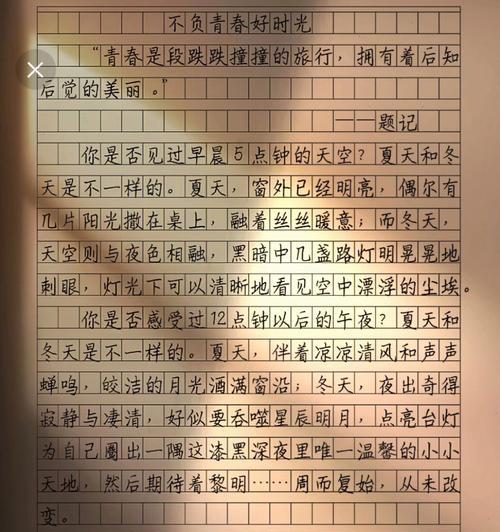 不负青春好时光
“青春是段跌跌撞撞的旅行，拥有着后知
后觉的美丽。”
——题记
你是否见过早晨5点钟的天空？夏天和冬
天是不一样的。夏天，窗外已经明亮，偶尔有
几片阳光撒在桌上，融着丝丝暖意；而冬天，
天空则与夜色相融，黑暗中几盏路灯明晃晃地
刺眼，灯光下可以清晰地看见空中漂浮的尘埃。
你是否感受过12点钟以后的午夜？夏天和
冬天是不一样的。夏天，伴着凉凉清风和声声
蝉鸣，皎洁的月光洒满窗沿；冬天，夜出奇得
寂静与凄清，好似要吞噬星辰明月，点亮台灯
为自己圈出一隅这漆黑深夜里唯一温馨的小小
天地，然后期待着黎明……周而复始，从未改
变。